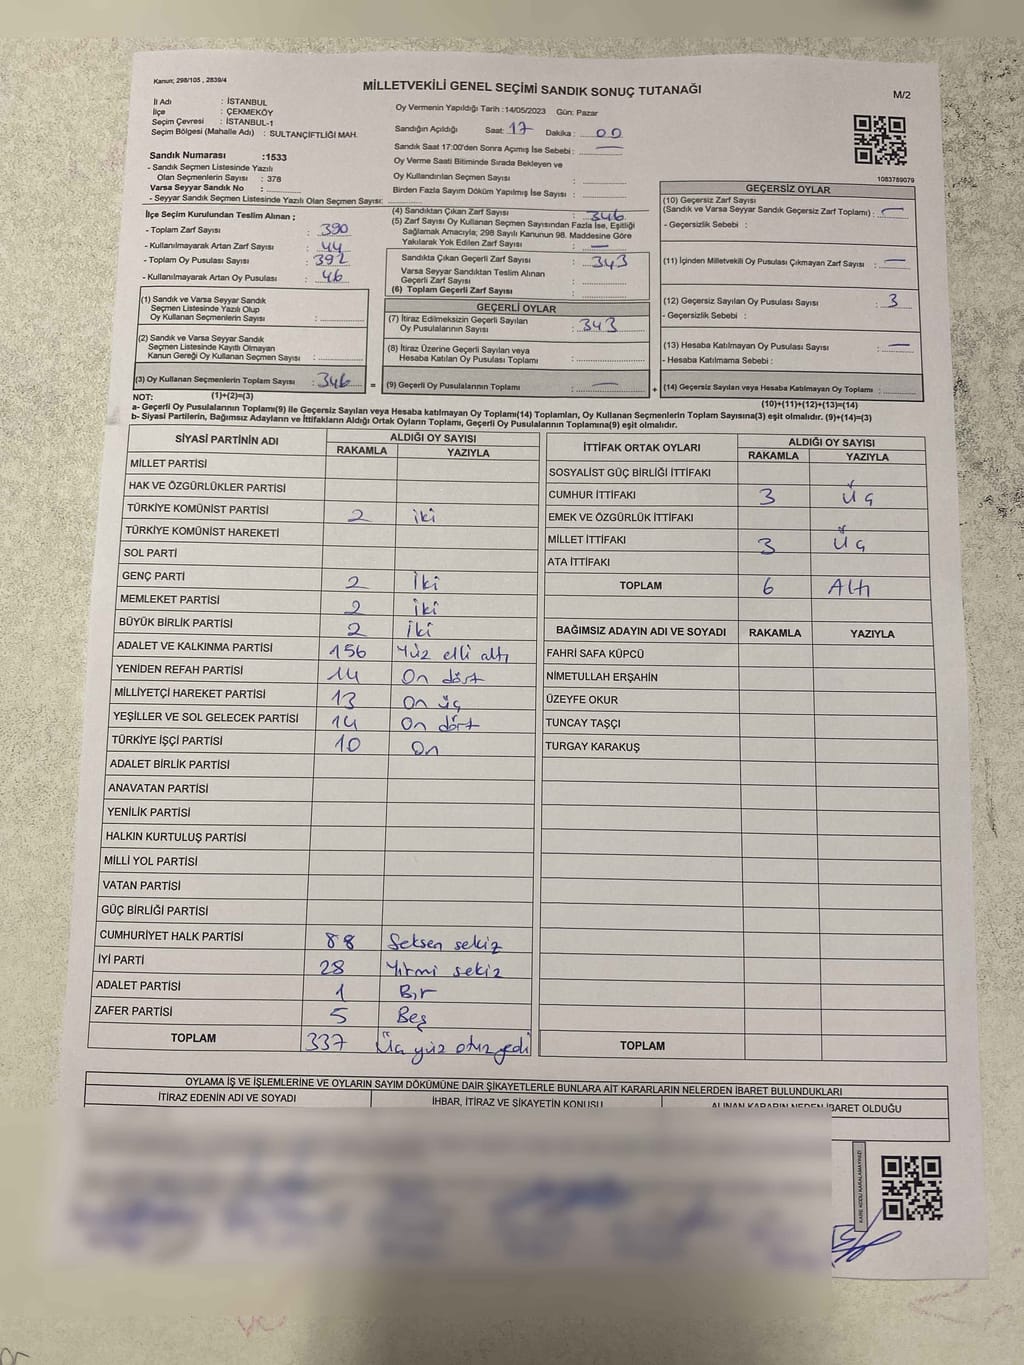 Kanun; 298/105 , 2839/4
MİLLETVEKİLİ GENEL SEÇİMİ SANDIK SONUÇ TUTANAĞI
M/2
İl Adı : İSTANBUL
İlçe : ÇEKMEKÖY
Seçim Çevresi : İSTANBUL-1
Seçim Bölgesi (Mahalle Adı) : SULTANÇİFTLİĞİ MAH.
Oy Vermenin Yapıldığı Tarih :14/05/2023 Gün: Pazar
Sandığın Açıldığı Saat: 17 Dakika : 00
Sandık Saat 17:00'den Sonra Açımış İse Sebebi :
Oy Verme Saati Bitiminde Sırada Bekleyen ve
Oy Kullandırılan Seçmen Sayısı :
Birden Fazla Sayım Döküm Yapılmış İse Sayısı :
1083789079
Sandık Numarası :1533
- Sandık Seçmen Listesinde Yazılı
Olan Seçmenlerin Sayısı : 378
Varsa Seyyar Sandık No :
- Seyyar Sandık Seçmen Listesinde Yazılı Olan Seçmen Sayısı:
İlçe Seçim Kurulundan Teslim Alınan ;
- Toplam Zarf Sayısı : 390
- Kullanılmayarak Artan Zarf Sayısı : 44
- Toplam Oy Pusulası Sayısı : 392
- Kullanılmayarak Artan Oy Pusulası : 46
(1) Sandık ve Varsa Seyyar Sandık
Seçmen Listesinde Yazılı Olup
Oy Kullanan Seçmenlerin Sayısı :
(2) Sandık ve Varsa Seyyar Sandık
Seçmen Listesinde Kayıtlı Olmayan
Kanun Gereği Oy Kullanan Seçmen Sayısı :
(3) Oy Kullanan Seçmenlerin Toplam Sayısı : 346 =
(4) Sandıktan Çıkan Zarf Sayısı : 346
(5) Zarf Sayısı Oy Kullanan Seçmen Sayısından Fazla İse, Eşitliği
Sağlamak Amacıyla; 298 Sayılı Kanunun 98. Maddesine Göre
Yakılarak Yok Edilen Zarf Sayısı : —
Sandıkta Çıkan Geçerli Zarf Sayısı : 343
Varsa Seyyar Sandıktan Teslim Alınan
Geçerli Zarf Sayısı :
(6) Toplam Geçerli Zarf Sayısı :
GEÇERLİ OYLAR
(7) İtiraz Edilmeksizin Geçerli Sayılan
Oy Pusulalarının Sayısı : 343
(8) İtiraz Üzerine Geçerli Sayılan veya
Hesaba Katılan Oy Pusulası Toplamı :
(9) Geçerli Oy Pusulalarının Toplamı : — +
GEÇERSİZ OYLAR
(10) Geçersiz Zarf Sayısı
(Sandık ve Varsa Seyyar Sandık Geçersiz Zarf Toplamı) : —
- Geçersizlik Sebebi :
(11) İçinden Milletvekili Oy Pusulası Çıkmayan Zarf Sayısı : —
(12) Geçersiz Sayılan Oy Pusulası Sayısı : 3
- Geçersizlik Sebebi :
(13) Hesaba Katılmayan Oy Pusulası Sayısı : —
- Hesaba Katılmama Sebebi :
(14) Geçersiz Sayılan veya Hesaba Katılmayan Oy Toplamı :
NOT: (1)+(2)=(3) (10)+(11)+(12)+(13)=(14)
a- Geçerli Oy Pusulalarının Toplamı(9) ile Geçersiz Sayılan veya Hesaba katılmayan Oy Toplamı(14) Toplamları, Oy Kullanan Seçmenlerin Toplam Sayısına(3) eşit olmalıdır. (9)+(14)=(3)
b- Siyasi Partilerin, Bağımsız Adayların ve İttifakların Aldığı Ortak Oyların Toplamı, Geçerli Oy Pusulalarının Toplamına(9) eşit olmalıdır.
SİYASİ PARTİNİN ADI ALDIĞI OY SAYISI
RAKAMLA YAZIYLA
MİLLET PARTİSİ
HAK VE ÖZGÜRLÜKLER PARTİSİ
TÜRKİYE KOMÜNİST PARTİSİ 2 iki
TÜRKİYE KOMÜNİST HAREKETİ
SOL PARTİ
GENÇ PARTİ 2 İki
MEMLEKET PARTİSİ 2 iki
BÜYÜK BİRLİK PARTİSİ 2 iki
ADALET VE KALKINMA PARTİSİ 156 Yüz elli altı
YENİDEN REFAH PARTİSİ 14 On dört
MİLLİYETÇİ HAREKET PARTİSİ 13 On üç
YEŞİLLER VE SOL GELECEK PARTİSİ 14 On dört
TÜRKİYE İŞÇİ PARTİSİ 10 On
ADALET BİRLİK PARTİSİ
ANAVATAN PARTİSİ
YENİLİK PARTİSİ
HALKIN KURTULUŞ PARTİSİ
MİLLİ YOL PARTİSİ
VATAN PARTİSİ
GÜÇ BİRLİĞİ PARTİSİ
CUMHURİYET HALK PARTİSİ 88 Seksen sekiz
İYİ PARTİ 28 Yirmi sekiz
ADALET PARTİSİ 1 Bir
ZAFER PARTİSİ 5 Beş
TOPLAM 337 Üç yüz otuz yedi
İTTİFAK ORTAK OYLARI ALDIĞI OY SAYISI
RAKAMLA YAZIYLA
SOSYALİST GÜÇ BİRLİĞİ İTTİFAKI
CUMHUR İTTİFAKI 3 Üç
EMEK VE ÖZGÜRLÜK İTTİFAKI
MİLLET İTTİFAKI 3 Üç
ATA İTTİFAKI
TOPLAM 6 Altı
BAĞIMSIZ ADAYIN ADI VE SOYADI RAKAMLA YAZIYLA
FAHRİ SAFA KÜPCÜ
NİMETULLAH ERŞAHİN
ÜZEYFE OKUR
TUNCAY TAŞÇI
TURGAY KARAKUŞ
TOPLAM
OYLAMA İŞ VE İŞLEMLERİNE VE OYLARIN SAYIM DÖKÜMÜNE DAİR ŞİKAYETLERLE BUNLARA AİT KARARLARIN NELERDEN İBARET BULUNDUKLARI
İTİRAZ EDENİN ADI VE SOYADI İHBAR, İTİRAZ VE ŞİKAYETİN KONUSU ALINAN KARARIN NEDEN İBARET OLDUĞU
KARE KODU KARALAMAYINIZ!